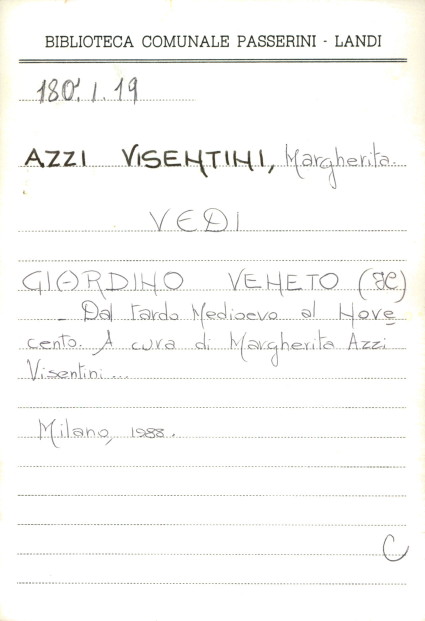 BIBLIOTECA COMUNALE PASSERINI - LANDI
180'.I.19
AZZI VISENTINI, Margherita.
VEDI
GIARDINO VENETO (IL)
- Dal tardo Medioevo al Nove
cento. A cura di Margherita Azzi
Visentini...
Milano, 1988.
C